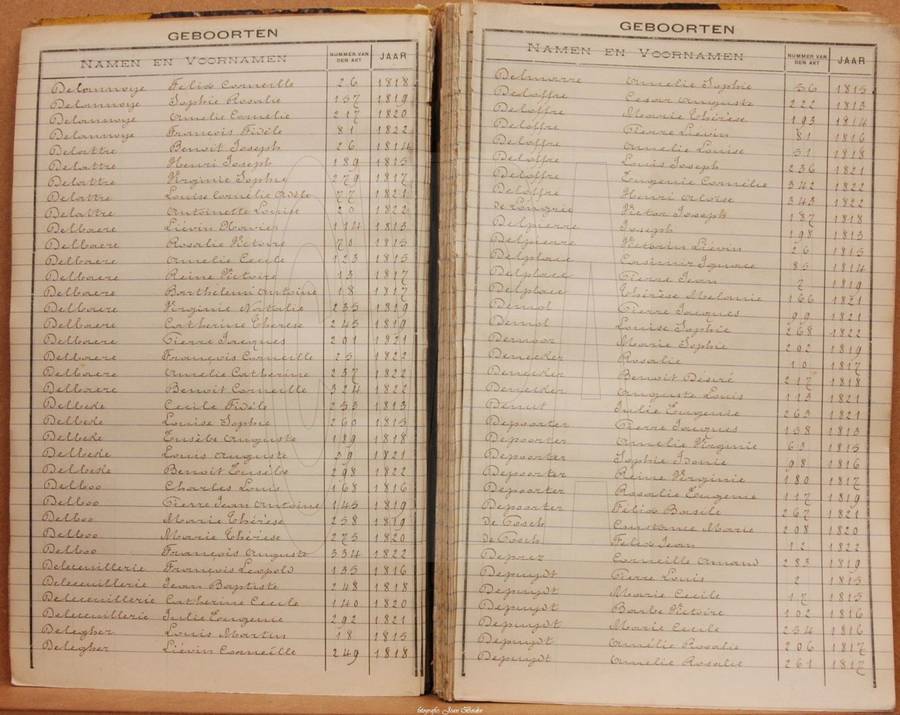 GEBOORTEN
NAMEN EN VOORNAMEN NUMMER VAN DEN AKT JAAR
Delannoye Felix Corneille 26 1818
Delannoye Sophie Rosalie 157 1819
Delannoye Amelie Cornelie 217 1820
Delannoye François Fidèle 81 1822
Delattre Benoit Joseph 26 1814
Delattre Henri Joseph 189 1815
Delattre Virginie Sophie 279 1817
Delattre Louise Cornelie Adèle 77 1821
Delattre Antoinette Louise 20 1822
Delbaere Liévin Xavier 114 1813
Delbaere Rosalie Victoire 70 1815
Delbaere Amelie Cecile 123 1815
Delbaere Reine Victoire 13 1817
Delbaere Barthélemi Antoine 18 1817
Delbaere Virginie Nathalie 235 1819
Delbaere Catherine Thérèse 245 1819
Delbaere Pierre Jacques 201 1821
Delbaere François Corneille 25 1822
Delbaere Amelie Catherine 237 1822
Delbaere Benoit Corneille 324 1822
Delbeke Cecile Fidèle 253 1813
Delbeke Louise Sophie 260 1815
Delbeke Eusèbe Auguste 189 1818
Delbeke Louis Auguste 59 1821
Delbeke Benoit Eusèbe 298 1822
Delboo Charles Louis 168 1816
Delboo Pierre Jean Antoine 145 1819
Delboo Marie Thérèse 258 1819
Delboo Marie Thérèse 275 1820
Delboo François Auguste 334 1822
Deleceuillerie François Leopold 135 1816
Deleceuillerie Jean Baptiste 248 1818
Deleceuillerie Catherine Cecile 140 1820
Deleceuillerie Julie Eugenie 292 1821
Delegher Louis Martin 18 1815
Delegher Liévin Corneille 249 1818
GEBOORTEN
NAMEN EN VOORNAMEN NUMMER VAN DEN AKT JAAR
Delmarre Amelie Sophie 56 1815
Deloffre Cesar Auguste 222 1813
Deloffre Marie Thérèse 193 1814
Deloffre Pierre Liévin 81 1816
Deloffre Amelie Louise 31 1818
Deloffre Louis Joseph 236 1821
Deloffre Eugenie Cornélie 342 1822
Deloffre Henri Aloïse 343 1822
de Longrie Victor Joseph 187 1818
Delpierre Joseph 198 1813
Delpierre Victorin Liévin 26 1815
Delplace Casimir Ignace 85 1814
Delplace Pierre Jean 2 1819
Delplace Thérèse Melanie 166 1821
Demol Pierre Jacques 99 1821
Demol Louise Sophie 268 1822
Demoor Marie Sophie 202 1819
Denecker Rosalie 10 1817
Denecker Benoit Désiré 217 1818
Denecker Auguste Louis 113 1821
Denut Julie Eugenie 263 1821
Depoorter Pierre Jacques 158 1813
Depoorter Amelie Virginie 63 1815
Depoorter Sophie Idonie 98 1816
Depoorter Reine Virginie 180 1817
Depoorter Rosalie Eugenie 117 1819
Depoorter Félix Basile 267 1821
de Cosch Constance Marie 208 1820
de Cosch Felix Jean 12 1822
Deprez Corneille Amand 283 1819
Depuydt Pierre Louis 2 1815
Depuydt Marie Cecile 17 1815
Depuydt Barbe Victoire 102 1816
Depuydt Marie Cecile 254 1816
Depuydt Amélie Rosalie 206 1817
Depuydt Amelie Rosalie 261 1817